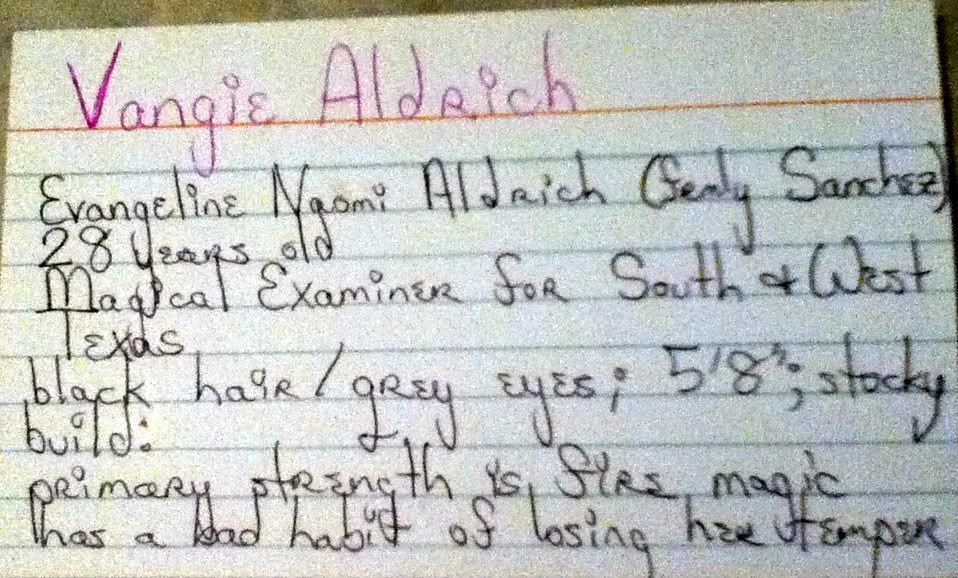 Vangie Aldrich
Evangeline Naomi Aldrich (Sanchez)
28 years old
Magical Examiner for South & West
Texas
black hair/grey eyes; 5'8"; stocky
build:
primary strength is fire magic
has a bad habit of losing her temper